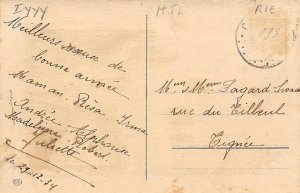 IYYY
HTL
RIE
Meilleurs vœux de
bonne année
Maman Irma
Andrée Alphonse
Madeleine Robert
Juliette
le 29.12.34
Mr Mme Pagard
rue du Tilleul
Tignée